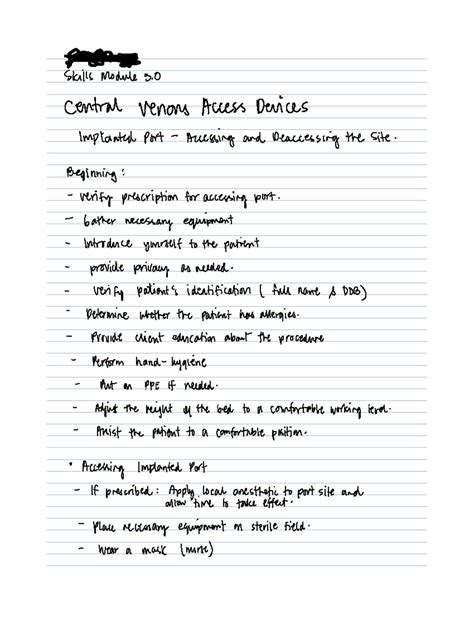 Skills Module 3.0
Central Venous Access Devices
Implanted Port - Accessing and Deaccessing the Site.
Beginning:
- Verify prescription for accessing port.
- Gather necessary equipment
- Introduce yourself to the patient
- provide privacy as needed.
- Verify patient's identification ( full name & DOB)
- Determine whether the patient has allergies.
- Provide client education about the procedure
- Perform hand-hygiene
- Put on PPE if needed.
- Adjust the height of the bed to a comfortable working level.
- Assist the patient to a comfortable position.
• Accessing Implanted Port
- If prescribed: Apply local anesthetic to port site and
allow time to take effect.
- Place necessary equipment on sterile field.
- Wear a mask (nurse)